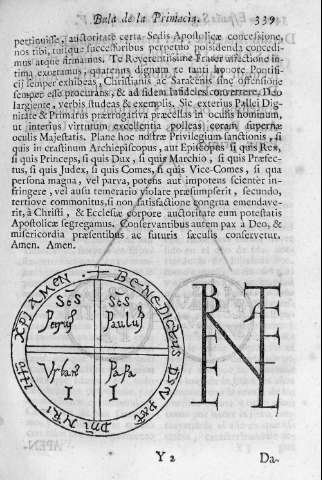 Bula de la Primacia. 339
pertinuisse, auctoritate certa Sedis Apostolicæ concessione,
nos tibi, tuisque successoribus perpetuo possidenda concedi-
mus atque firmamus. Te Reverentissime Frater affectione in-
tima exoramus, quatenus dignum te tanti honore Pontifi-
cij semper exhibeas, Christianis ac Saracenis sine offensione
semper esse procurans, & ad fidem Infideles convertere, Deo
largiente, verbis studeas & exemplis. Sic exterius Pallei Dig-
nitate & Primatus prærrogativa præcellas in oculis hominum,
ut interius virtutum excellentia polleas coram supernæ
oculis Majestatis. Plane hoc nostræ Privilegium sanctionis, si
quis in crastinum Archiepiscopus, aut Episcopus si quis Rex,
si quis Princeps, si quis Dux, si quis Marchio, si quis Præfec-
tus, si quis Judex, si quis Comes, si quis Vice-Comes, si qua
persona magua, vel parva, potens aut impotens scienter in-
fringere, vel ausu temerario violare præsumpserit, secundo,
tertiove commonitus, si non satisfactione congrua emendave-
rit, à Christi, & Ecclesiæ corpore auctoritate eum potestatis
Apostolicæ segregamus. Conservantibus autem pax à Deo, &
misericordia præsentibus ac futuris sæculis conservetur.
Amen. Amen.
BENEDICTUS DEUS PATER DNI NRI IHU XPI AMEN
Scs Scs
Petrus Paulus
Urbanus Papa
I I
BENE
Y 2 Da-